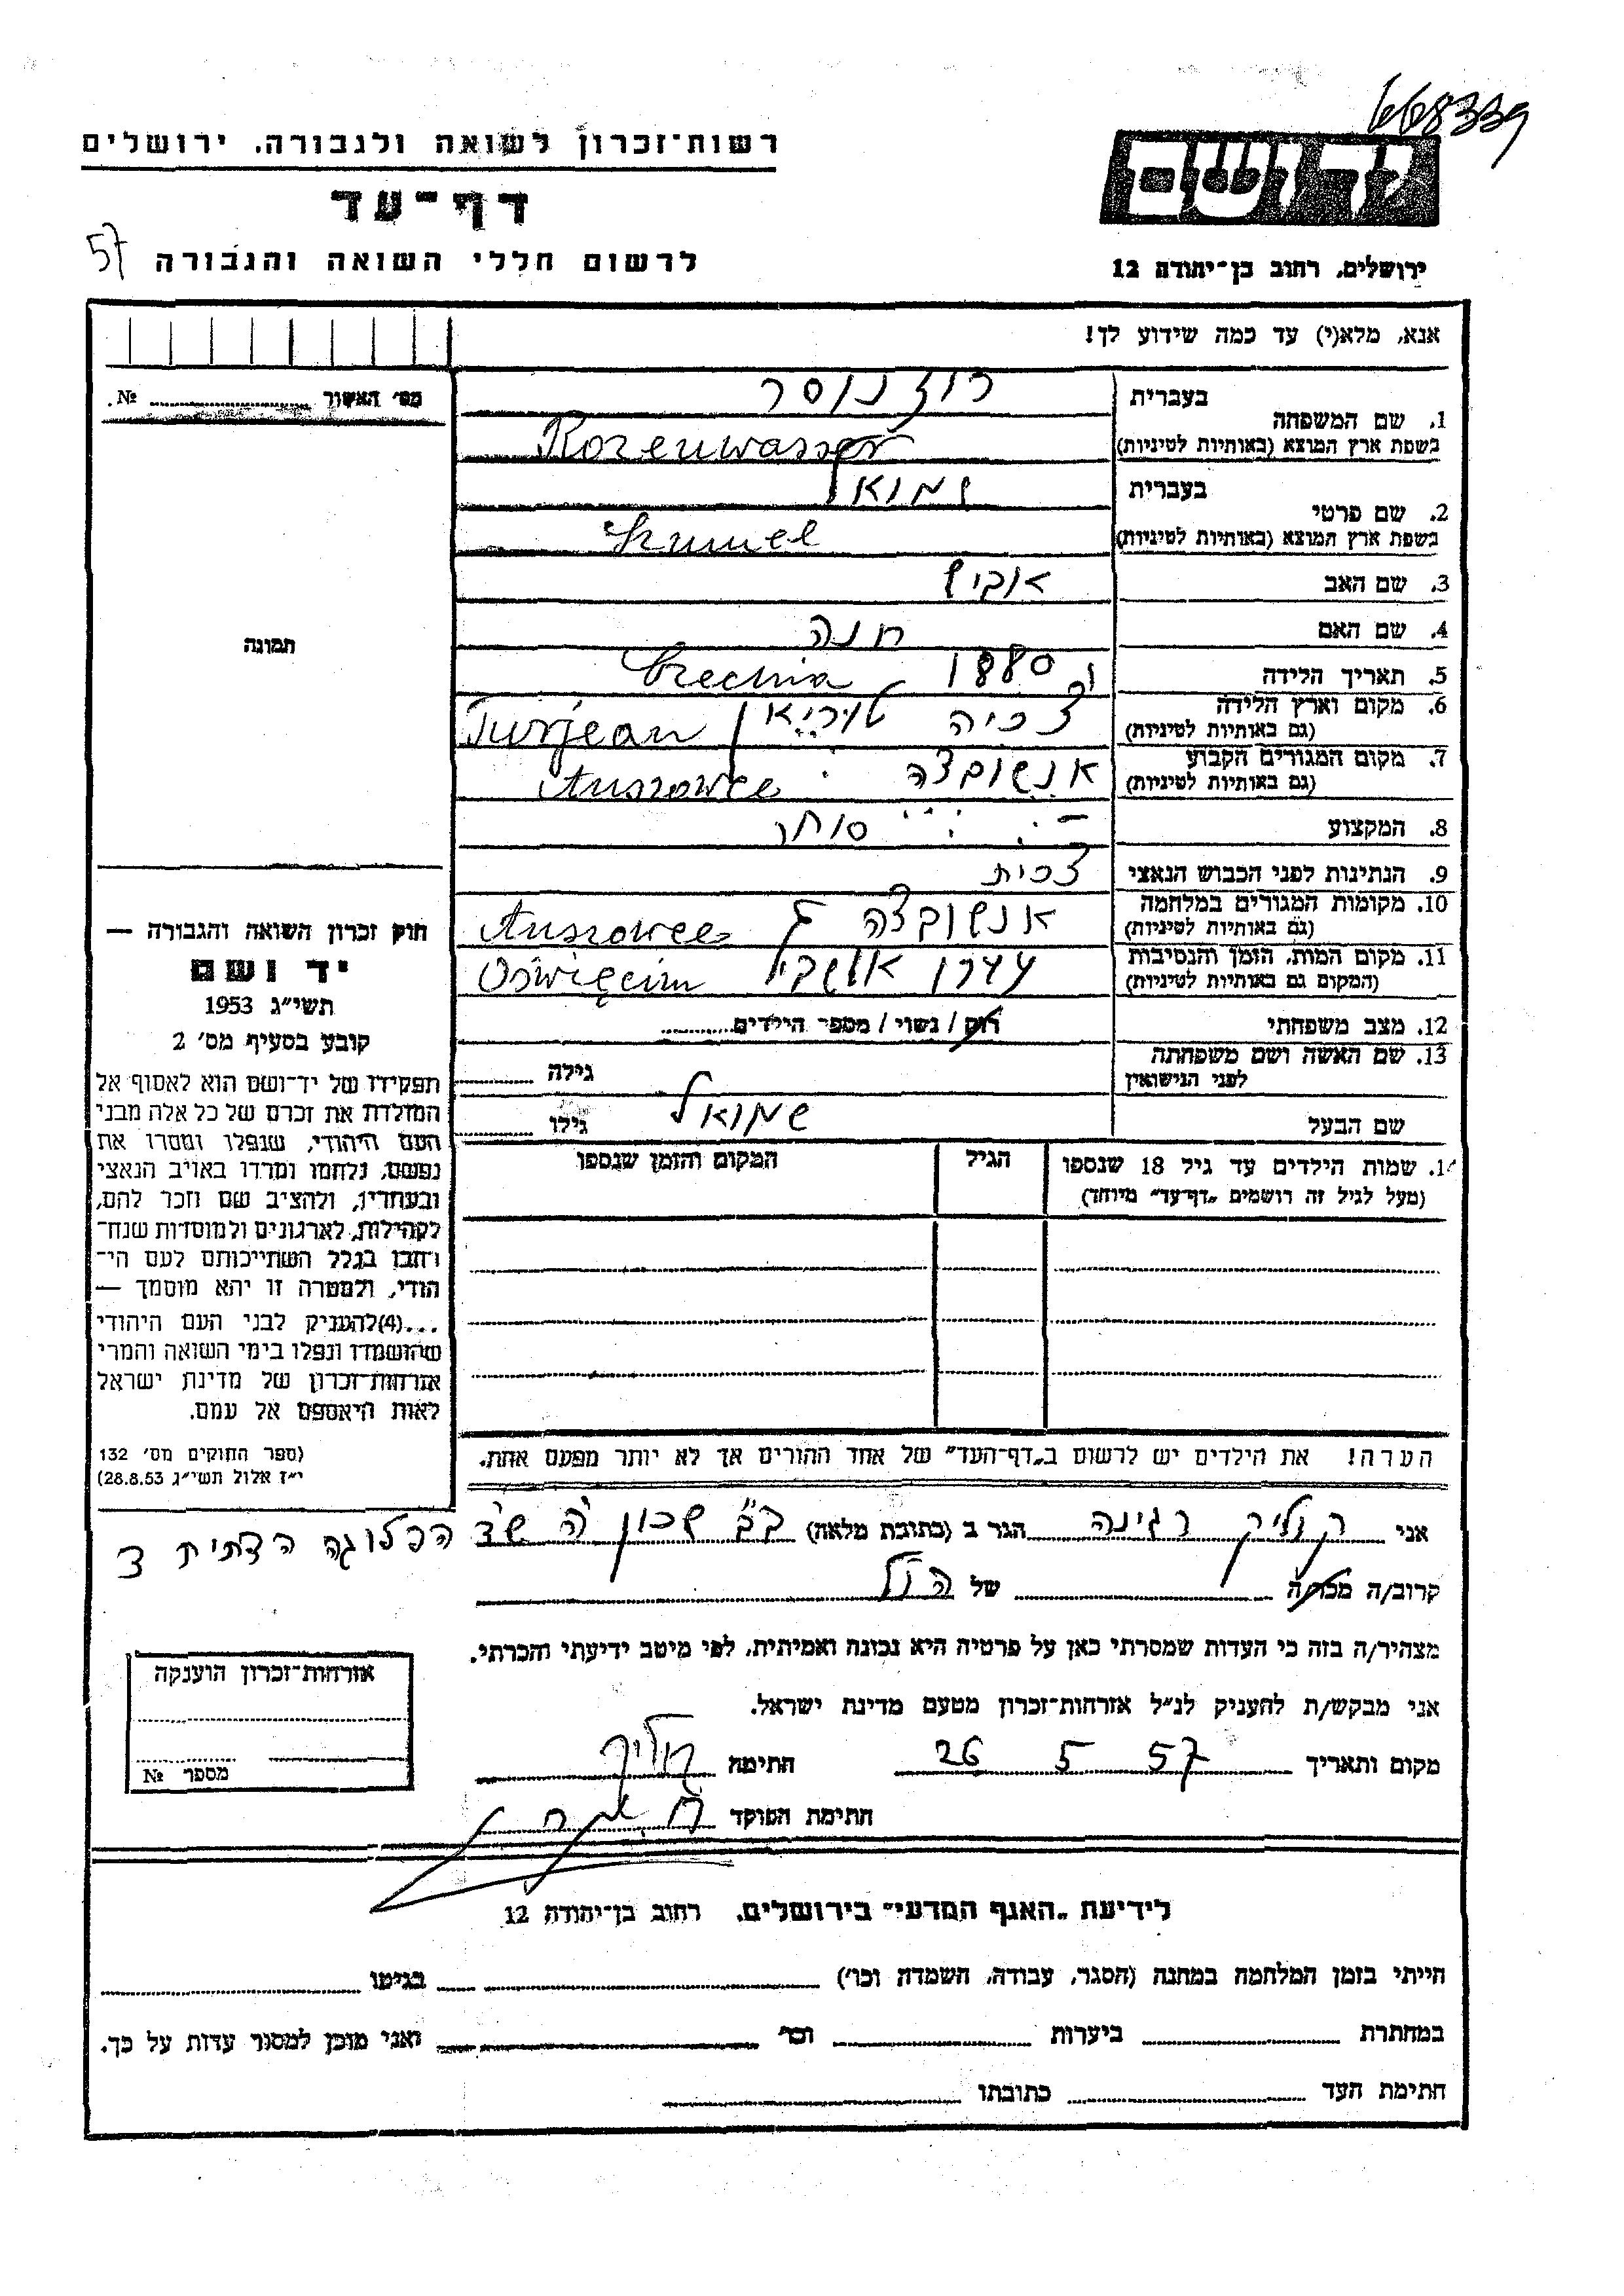 668339
רשות־זכרון לשואה ולגבורה, ירושלים
יד ושם
דף־עד
לרשום חללי השואה והגבורה 57
ירושלים, רחוב בן־יהודה 12
אנא, מלא(י) עד כמה שידוע לך!
מס׳ האשור № 
1. שם המשפחה
בעברית רוזנוסר
בשפת ארץ המוצא (באותיות לטיניות) Rozenwasser
2. שם פרטי
בעברית שמואל
בשפת ארץ המוצא (באותיות לטיניות) Szmuel
3. שם האב אביש
4. שם האם חנה
5. תאריך הלידה 1880
6. מקום וארץ הלידה
(גם באותיות לטיניות) צכיה Czechia Turjean
7. מקום המגורים הקבוע
(גם באותיות לטיניות) אנשובצה Anszowce
8. המקצוע סוחר
9. הנתינות לפני הכבוש הנאצי צכית
10. מקומות המגורים במלחמה
(גם באותיות לטיניות) אנשובצה Anszowce
11. מקום המות, הזמן והנסיבות
(המקום גם באותיות לטיניות) Oświęcim
12. מצב משפחתי רוק / נשוי / מספר הילדים
13. שם האשה ושם משפחתה
לפני הנישואין גילה
שם הבעל שמואל גילו
14. שמות הילדים עד גיל 18 שנספו
(מעל לגיל זה רושמים „דף־עד” מיוחד)
הגיל
המקום והזמן שנספו
הערה! את הילדים יש לרשום ב„דף־העד” של אחד ההורים אך לא יותר מפעם אחת.
תמונה
חוק זכרון השואה והגבורה —
יד ושם
תשי״ג 1953
קובע בסעיף מס׳ 2
תפקידו של יד־ושם הוא לאסוף אל
המולדת את זכרם של כל אלה מבני
העם היהודי, שנפלו ומסרו את
נפשם, נלחמו ומרדו באויב הנאצי
ובעוזריו, ולהציב שם וזכר להם,
לקהילות, לארגונים ולמוסדות שנח־
רבו בגלל השתייכותם לעם הי־
הודי, ולמטרה זו יהא מוסמך —
...(4)להעניק לבני העם היהודי
שהושמדו ונפלו בימי השואה והמרי
אזרחות־זכרון של מדינת ישראל
לאות היאספם אל עמם.
(ספר החוקים מס׳ 132
י״ז אלול תשי״ג 28.8.53)
אני קוליק רגינה הגר ב (כתובת מלאה) שכון
קרוב/ה מכר/ה של הנ״ל
מצהיר/ה בזה כי העדות שמסרתי כאן על פרטיה היא נכונה ואמיתית, לפי מיטב ידיעתי והכרתי.
אני מבקש/ת להעניק לנ״ל אזרחות־זכרון מטעם מדינת ישראל.
מקום ותאריך 26 5 57 חתימה קוליק
חתימת הפוקד
אזרחות־זכרון הוענקה
מספר №
לידיעת „האגף המדעי” בירושלים, רחוב בן־יהודה 12
הייתי בזמן המלחמה במחנה (הסגר, עבודה, השמדה וכו׳) בגיטו
במחתרת ביערות וכו׳ ואני מוכן למסור עדות על כך.
חתימת העד כתובתו